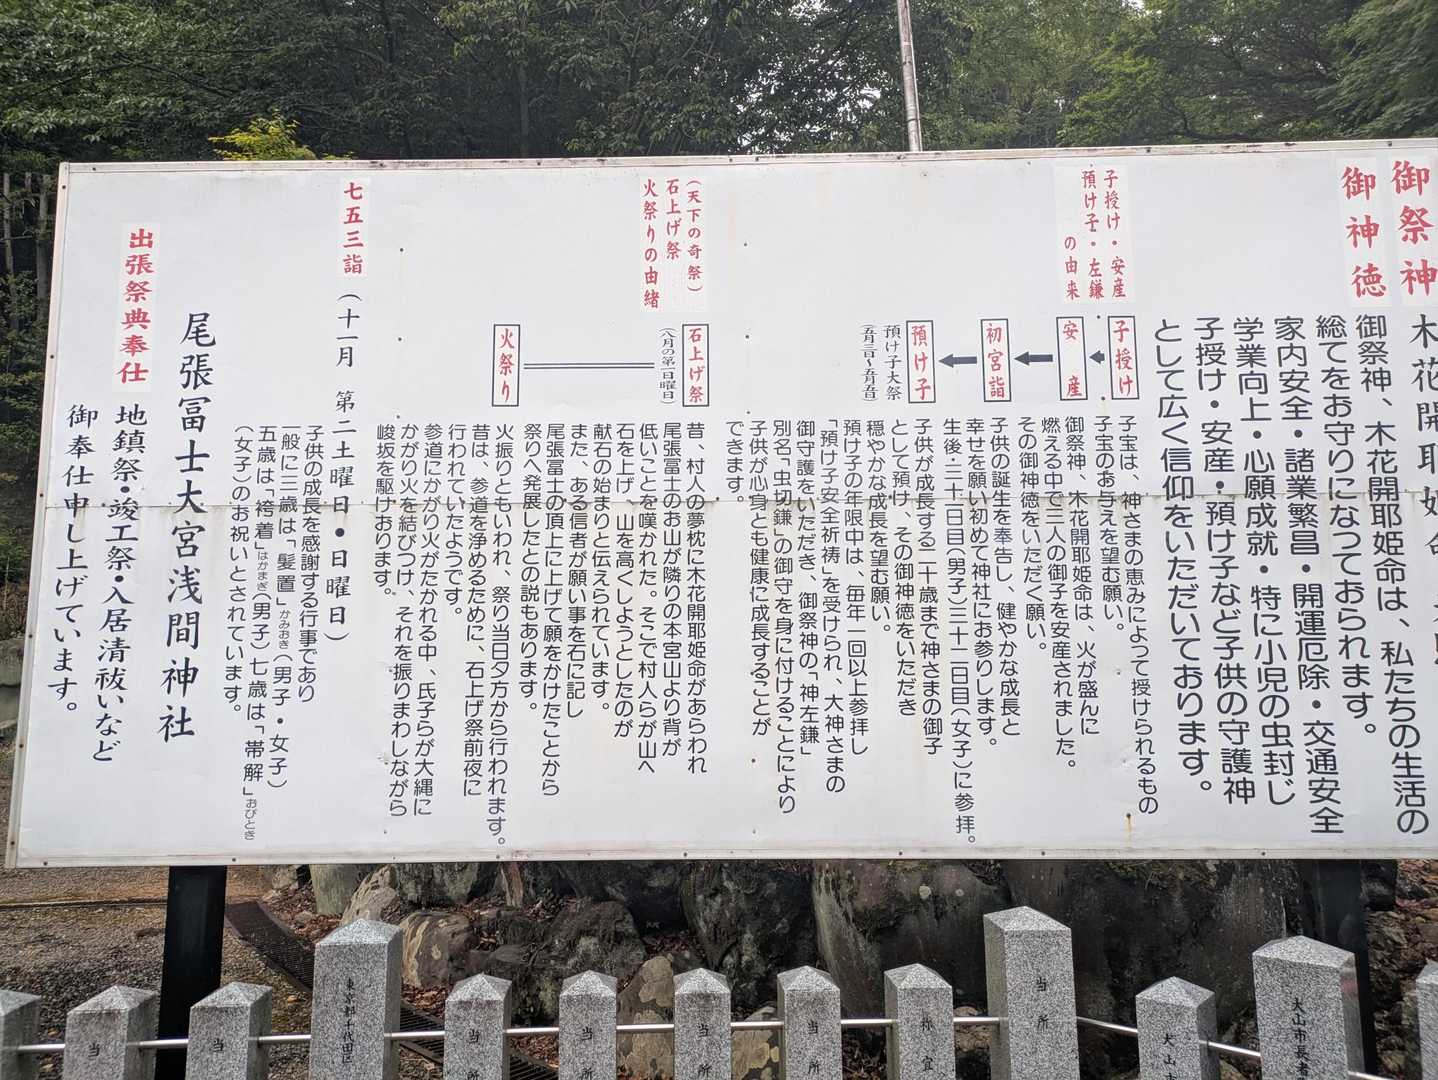 御祭神
木花開耶姫命
御神徳
御祭神、木花開耶姫命は、私たちの生活の
総てをお守りになつておられます。
家内安全・諸業繁昌・開運厄除・交通安全
学業向上・心願成就・特に小児の虫封じ
子授け・安産・預け子など子供の守護神
として広く信仰をいただいております。
子授け・安産
預け子・左鎌
の由来
子授け
子宝は、神さまの恵みによって授けられるもの
子宝のお与えを望む願い。
安産
御祭神、木花開耶姫命は、火が盛んに
燃える中で三人の御子を安産されました。
その御神徳をいただく願い。
初宮詣
子供の誕生を奉告し、健やかな成長と
幸せを願い初めて神社にお参りします。
生後・三十一日目(男子)三十二日目(女子)に参拝。
預け子
預け子大祭
(五月三日~五月五日)
子供が成長する二十歳まで神さまの御子
として預け、その御神徳をいただき
穏やかな成長を望む願い。
預け子の年限中は、毎年一回以上参拝し
「預け子安全祈祷」を受けられ、大神さまの
御守護をいただき、御祭神の「神左鎌」
別名「虫切鎌」の御守を身に付けることにより
子供が心身とも健康に成長することが
できます。
(天下の奇祭)
石上げ祭
火祭りの由緒
石上げ祭
(八月の第一日曜日)
昔、村人の夢枕に木花開耶姫命があらわれ
尾張冨士のお山が隣りの本宮山より背が
低いことを嘆かれた。そこで村人らが山へ
石を上げ、山を高くしようとしたのが
献石の始まりと伝えられています。
また、ある信者が願い事を石に記し
尾張冨士の頂上に上げて願をかけたことから
祭りへ発展したとの説もあります。
火祭り
火振りともいわれ、祭り当日夕方から行われます。
昔は、参道を浄めるために、石上げ祭前夜に
行われていたようです。
参道にかがり火がたかれる中、氏子らが大縄に
かがり火を結びつけ、それを振りまわしながら
峻坂を駆けおります。
七五三詣
(十一月 第二土曜日・日曜日)
子供の成長を感謝する行事であり
一般に三歳は「髪置」かみおき(男子・女子)
五歳は「袴着」はかまぎ(男子)七歳は「帯解」おびとき
(女子)のお祝いとされています。
尾張冨士大宮浅間神社
出張祭典奉仕
地鎮祭・竣工祭・入居清祓いなど
御奉仕申し上げています。
当
当
東京都千代田区
当所
当所
当所
当所
祢宜
当所
大山市
大山市長者